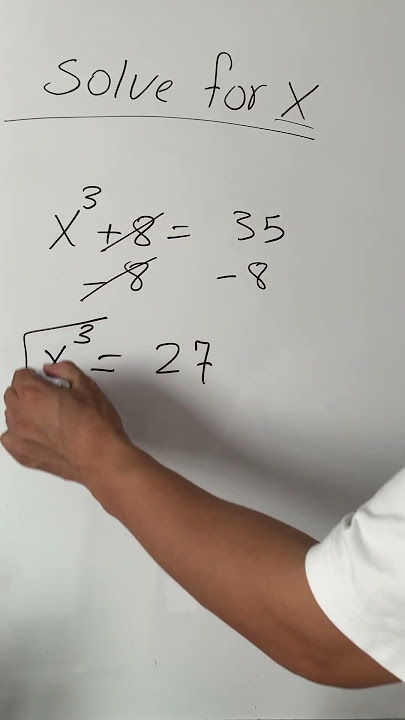 Solve for x
x³ + 8 = 35
- 8 - 8
x³ = 27